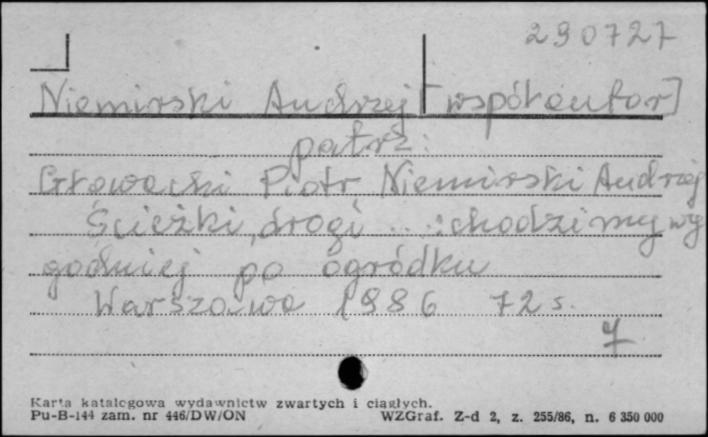 290727
Niemirski Andrzej [współautor]
patrz:
Głowacki Piotr Niemirski Andrzej
Ścieżki, drogi ... : chodzimy wy
godniej po ogródku
Warszawa 1986 72 s.
Karta katalogowa wydawnictw zwartych i ciągłych.
Pu-B-144 zam. nr 446/DW/ON WZGraf. Z-d 2, z. 255/86, n. 6 350 000